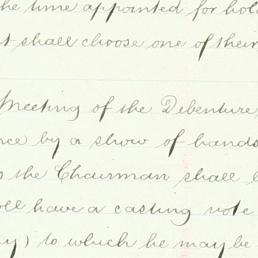 the time appointed for hol
t shall choose one of their
Meeting of the Debenture
nce by a show of hands
the Chairman shall
oll have a casting vote
y) to which he may be